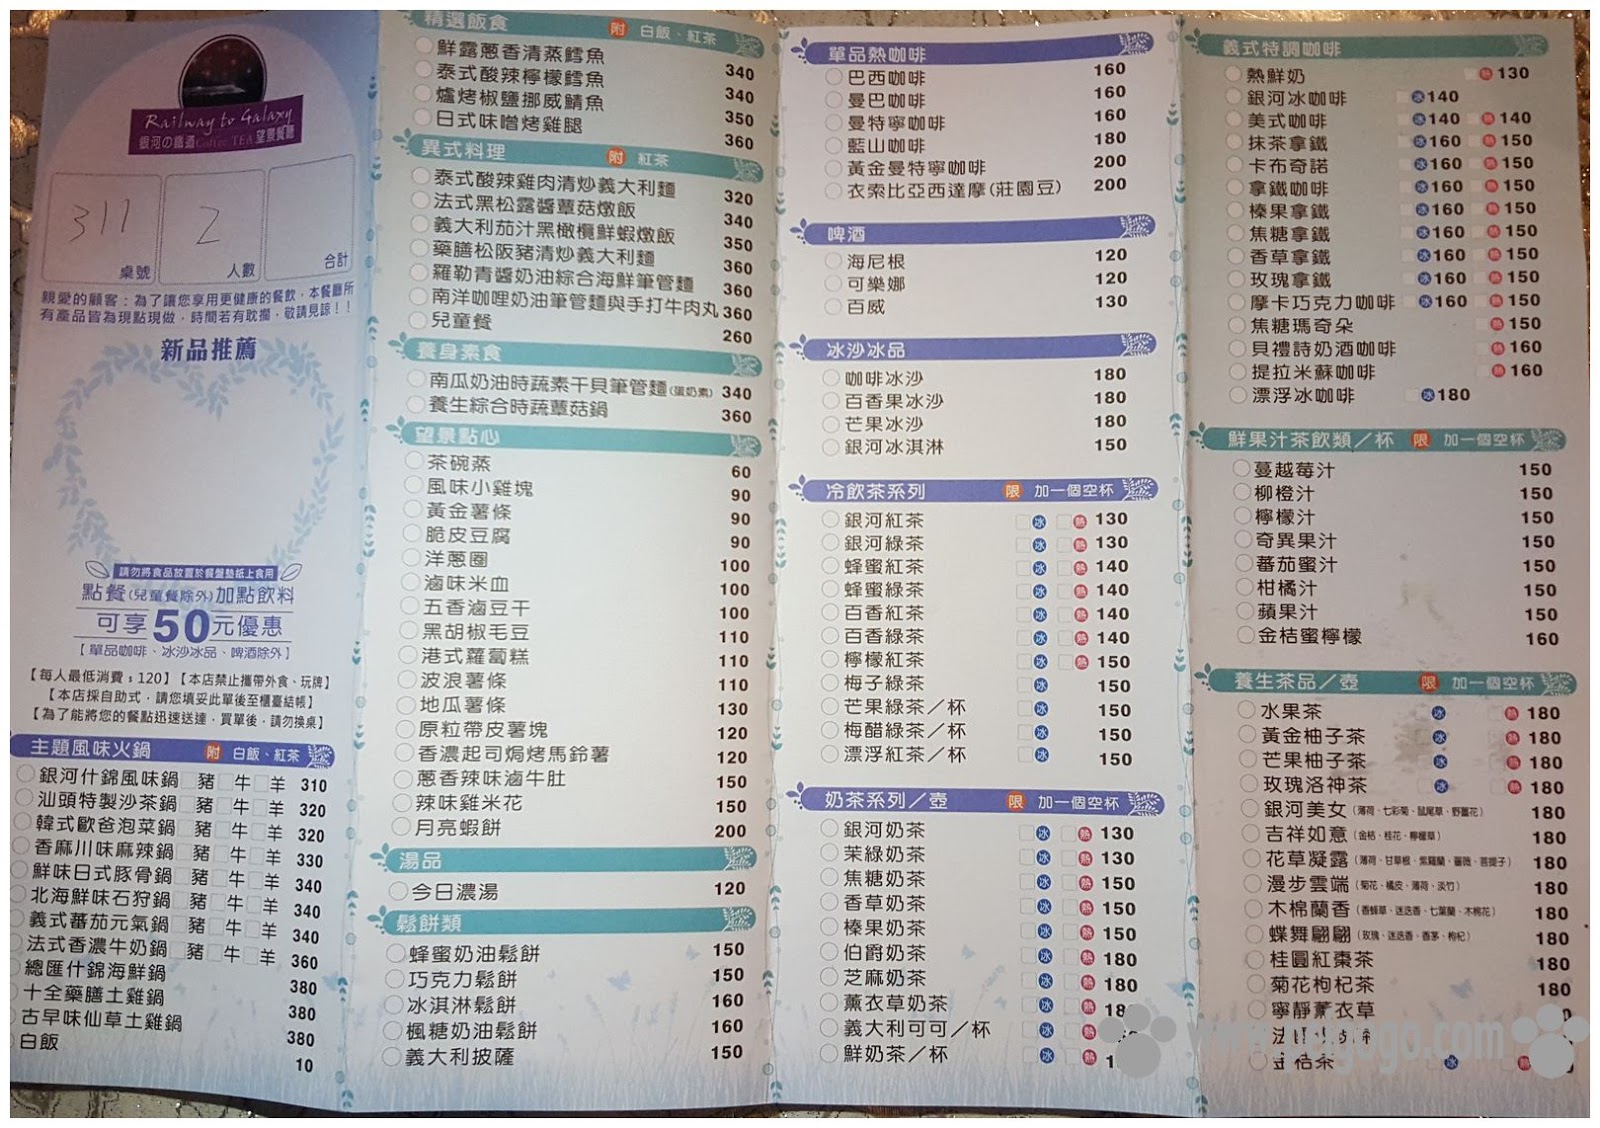 Railway to Galaxy
銀河の鐵道Coffee TEA望景餐廳
311
桌號
2
人數
合計
親愛的顧客：為了讓您享用更健康的餐飲，本餐廳所
有產品皆為現點現做，時間若有耽擱，敬請見諒！！
新品推薦
請勿將食品放置於餐盤墊紙上食用
點餐(兒童餐除外)加點飲料
可享50元優惠
【單品咖啡、冰沙冰品、啤酒除外】
【每人最低消費：120】【本店禁止攜帶外食、玩牌】
【本店採自助式，請您填妥此單後至櫃臺結帳】
【為了能將您的餐點迅速送達，買單後，請勿換桌】
主題風味火鍋 附 白飯、紅茶
銀河什錦風味鍋 豬 牛 羊 310
汕頭特製沙茶鍋 豬 牛 羊 320
韓式歐爸泡菜鍋 豬 牛 羊 320
香麻川味麻辣鍋 豬 牛 羊 330
鮮味日式豚骨鍋 豬 牛 羊 340
北海鮮味石狩鍋 豬 牛 羊 340
義式蕃茄元氣鍋 豬 牛 羊 340
法式香濃牛奶鍋 豬 牛 羊 360
總匯什錦海鮮鍋 380
十全藥膳土雞鍋 380
古早味仙草土雞鍋 380
白飯 10
精選飯食 附 白飯、紅茶
鮮露蔥香清蒸鱈魚 340
泰式酸辣檸檬鱈魚 340
爐烤椒鹽挪威鯖魚 350
日式味噌烤雞腿 360
異式料理 附 紅茶
泰式酸辣雞肉清炒義大利麵 320
法式黑松露醬蕈菇燉飯 340
義大利茄汁黑橄欖鮮蝦燉飯 350
藥膳松阪豬清炒義大利麵 360
羅勒青醬奶油綜合海鮮筆管麵 360
南洋咖哩奶油筆管麵與手打牛肉丸 360
兒童餐 260
養身素食
南瓜奶油時蔬素干貝筆管麵(蛋奶素) 340
養生綜合時蔬蕈菇鍋 360
望景點心
茶碗蒸 60
風味小雞塊 90
黃金薯條 90
脆皮豆腐 90
洋蔥圈 100
滷味米血 100
五香滷豆干 100
黑胡椒毛豆 110
港式蘿蔔糕 110
波浪薯條 110
地瓜薯條 130
原粒帶皮薯塊 120
香濃起司焗烤馬鈴薯 120
蔥香辣味滷牛肚 150
辣味雞米花 150
月亮蝦餅 200
湯品
今日濃湯 120
鬆餅類
蜂蜜奶油鬆餅 150
巧克力鬆餅 150
冰淇淋鬆餅 160
楓糖奶油鬆餅 160
義大利披薩 150
單品熱咖啡
巴西咖啡 160
曼巴咖啡 160
曼特寧咖啡 160
藍山咖啡 180
黃金曼特寧咖啡 200
衣索比亞西達摩(莊園豆) 200
啤酒
海尼根 120
可樂娜 120
百威 130
冰沙冰品
咖啡冰沙 180
百香果冰沙 180
芒果冰沙 180
銀河冰淇淋 150
冷飲茶系列 限 加一個空杯
銀河紅茶 冰 熱 130
銀河綠茶 冰 熱 130
蜂蜜紅茶 冰 熱 140
蜂蜜綠茶 冰 熱 140
百香紅茶 冰 熱 140
百香綠茶 冰 熱 140
檸檬紅茶 冰 熱 150
梅子綠茶 冰 150
芒果綠茶／杯 冰 150
梅醋綠茶／杯 冰 150
漂浮紅茶／杯 冰 150
奶茶系列／壺 限 加一個空杯
銀河奶茶 冰 熱 130
茉綠奶茶 冰 熱 130
焦糖奶茶 冰 熱 150
香草奶茶 冰 熱 150
榛果奶茶 冰 熱 150
伯爵奶茶 冰 熱 180
芝麻奶茶 冰 熱 180
薰衣草奶茶 冰 熱
義大利可可／杯 冰 熱
鮮奶茶／杯 冰 熱
義式特調咖啡
熱鮮奶 熱 130
銀河冰咖啡 冰 140
美式咖啡 冰 140 熱 140
抹茶拿鐵 冰 160 熱 150
卡布奇諾 冰 160 熱 150
拿鐵咖啡 冰 160 熱 150
榛果拿鐵 冰 160 熱 150
焦糖拿鐵 冰 160 熱 150
香草拿鐵 冰 160 熱 150
玫瑰拿鐵 冰 160 熱 150
摩卡巧克力咖啡 冰 160 熱 150
焦糖瑪奇朵 熱 150
貝禮詩奶酒咖啡 熱 160
提拉米蘇咖啡 熱 160
漂浮冰咖啡 冰 180
鮮果汁茶飲類／杯 限 加一個空杯
蔓越莓汁 150
柳橙汁 150
檸檬汁 150
奇異果汁 150
蕃茄蜜汁 150
柑橘汁 150
蘋果汁 150
金桔蜜檸檬 160
養生茶品／壺 限 加一個空杯
水果茶 冰 熱 180
黃金柚子茶 冰 熱 180
芒果柚子茶 冰 熱 180
玫瑰洛神茶 冰 熱 180
銀河美女(薄荷、七彩菊、鼠尾草、野薑花) 180
吉祥如意(金桔、桂花、檸檬草) 180
花草凝露(薄荷、甘草根、紫羅蘭、薔薇、菩提子) 180
漫步雲端(菊花、橘皮、薄荷、淡竹) 180
木棉蘭香(香蜂草、迷迭香、七葉蘭、木棉花) 180
蝶舞翩翩(玫瑰、迷迭香、香茅、枸杞) 180
桂圓紅棗茶 180
菊花枸杞茶 180
寧靜薰衣草
金桔茶 冰 熱